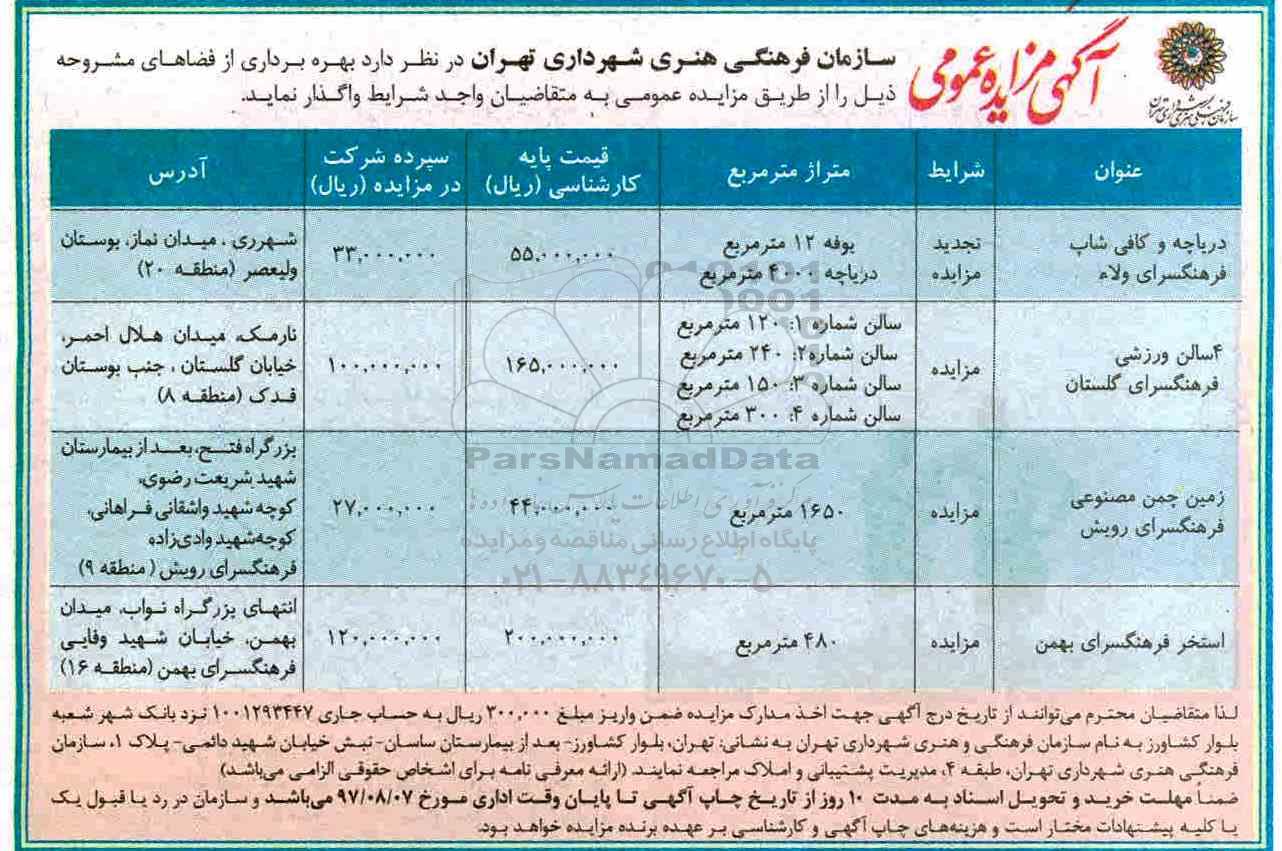 آگهی مزایده عمومی
سازمان فرهنگی هنری شهرداری تهران
سازمان فرهنگی هنری شهرداری تهران در نظر دارد بهره برداری از فضاهای مشروحه
ذیل را از طریق مزایده عمومی به متقاضیان واجد شرایط واگذار نماید.
عنوان شرایط متراژ مترمربع قیمت پایه کارشناسی (ریال) سپرده شرکت در مزایده (ریال) آدرس
دریاچه و کافی شاپ
فرهنگسرای ولاء
تجدید
مزایده
بوفه ۱۲ مترمربع
دریاچه ۴۰۰۰ مترمربع
۵۵,۰۰۰,۰۰۰
۳۳,۰۰۰,۰۰۰
شهرری ، میدان نماز، بوستان
ولیعصر (منطقه ۲۰)
۴سالن ورزشی
فرهنگسرای گلستان
مزایده
سالن شماره ۱: ۱۲۰ مترمربع
سالن شماره۲: ۲۴۰ مترمربع
سالن شماره ۳: ۱۵۰ مترمربع
سالن شماره ۴: ۳۰۰ مترمربع
۱۶۵,۰۰۰,۰۰۰
۱۰۰,۰۰۰,۰۰۰
نارمک، میدان هلال احمر،
خیابان گلستان ، جنب بوستان
فدک (منطقه ۸)
زمین چمن مصنوعی
فرهنگسرای رویش
مزایده
۱۶۵۰ مترمربع
۴۴,۰۰۰,۰۰۰
۲۷,۰۰۰,۰۰۰
بزرگراه فتح، بعد از بیمارستان
شهید شریعت رضوی،
کوچه شهید واشقانی فراهانی،
کوچه‌شهید وادی‌زاده
فرهنگسرای رویش (منطقه ۹)
استخر فرهنگسرای بهمن
مزایده
۴۸۰ مترمربع
۲۰۰,۰۰۰,۰۰۰
۱۲۰,۰۰۰,۰۰۰
انتهای بزرگراه نواب، میدان
بهمن، خیابان شهید وفایی
فرهنگسرای بهمن (منطقه ۱۶)
ParsNamadData
مرکز فرآوری اطلاعات پارس نماد داده ها
پایگاه اطلاع رسانی مناقصه و مزایده
۰۲۱-۸۸۳۴۹۶۷۰-۵
لذا متقاضیان محترم می‌توانند از تاریخ درج آگهی جهت اخذ مدارک مزایده ضمن واریز مبلغ ۳۰۰,۰۰۰ ریال به حساب جاری ۱۰۰۱۲۹۳۴۴۷ نزد بانک شهر شعبه
بلوار کشاورز به نام سازمان فرهنگی و هنری شهرداری تهران به نشانی: تهران، بلوار کشاورز- بعد از بیمارستان ساسان- نبش خیابان شهید دائمی- پلاک ۱، سازمان
فرهنگی هنری شهرداری تهران، طبقه ۴، مدیریت پشتیبانی و املاک مراجعه نمایند. (ارائه معرفی نامه برای اشخاص حقوقی الزامی می‌باشد)
ضمناً مهلت خرید و تحویل اسناد به مدت ۱۰ روز از تاریخ چاپ آگهی تا پایان وقت اداری مورخ ۹۷/۰۸/۰۷ می‌باشد و سازمان در رد یا قبول یک
یا کلیه پیشنهادات مختار است و هزینه‌های چاپ آگهی و کارشناسی بر عهده برنده مزایده خواهد بود.